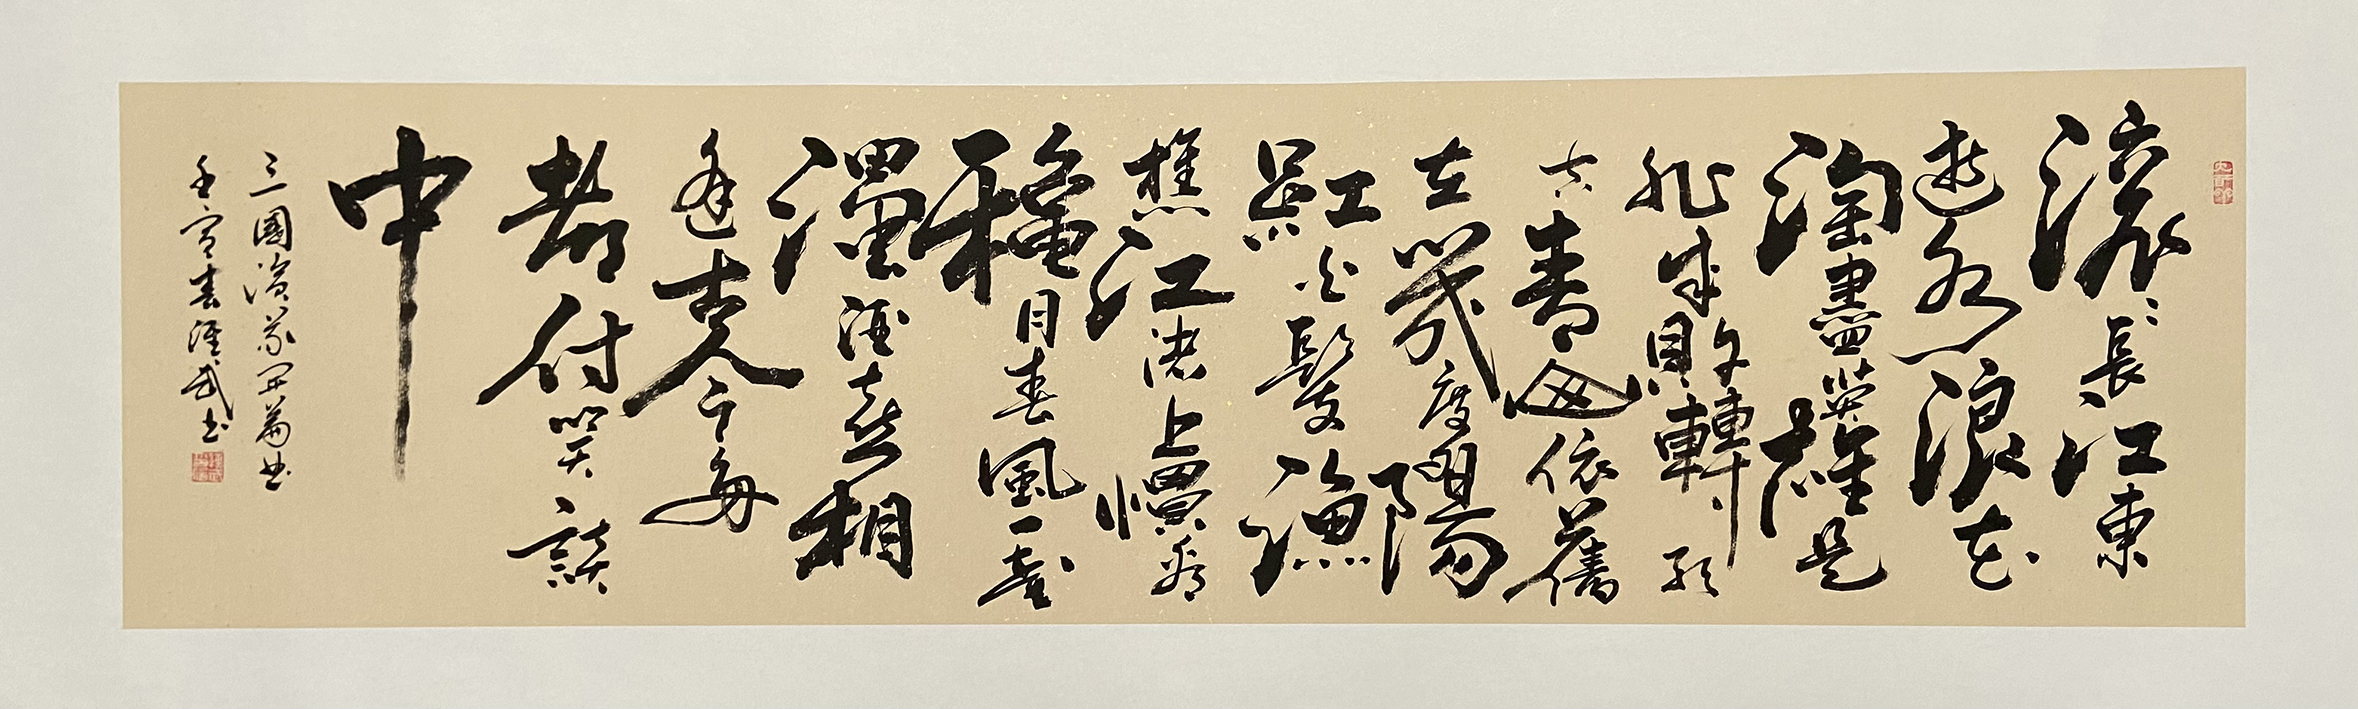 滚〻長江東
逝水浪花
淘盡英雄是
非成敗轉頭
空青山依舊
在幾度夕陽
紅白髮漁
樵江渚上慣看
穐月春風一壺
濁酒喜相
逢古今
都付笑談
中
三國演義開篇曲
壬寅春武书